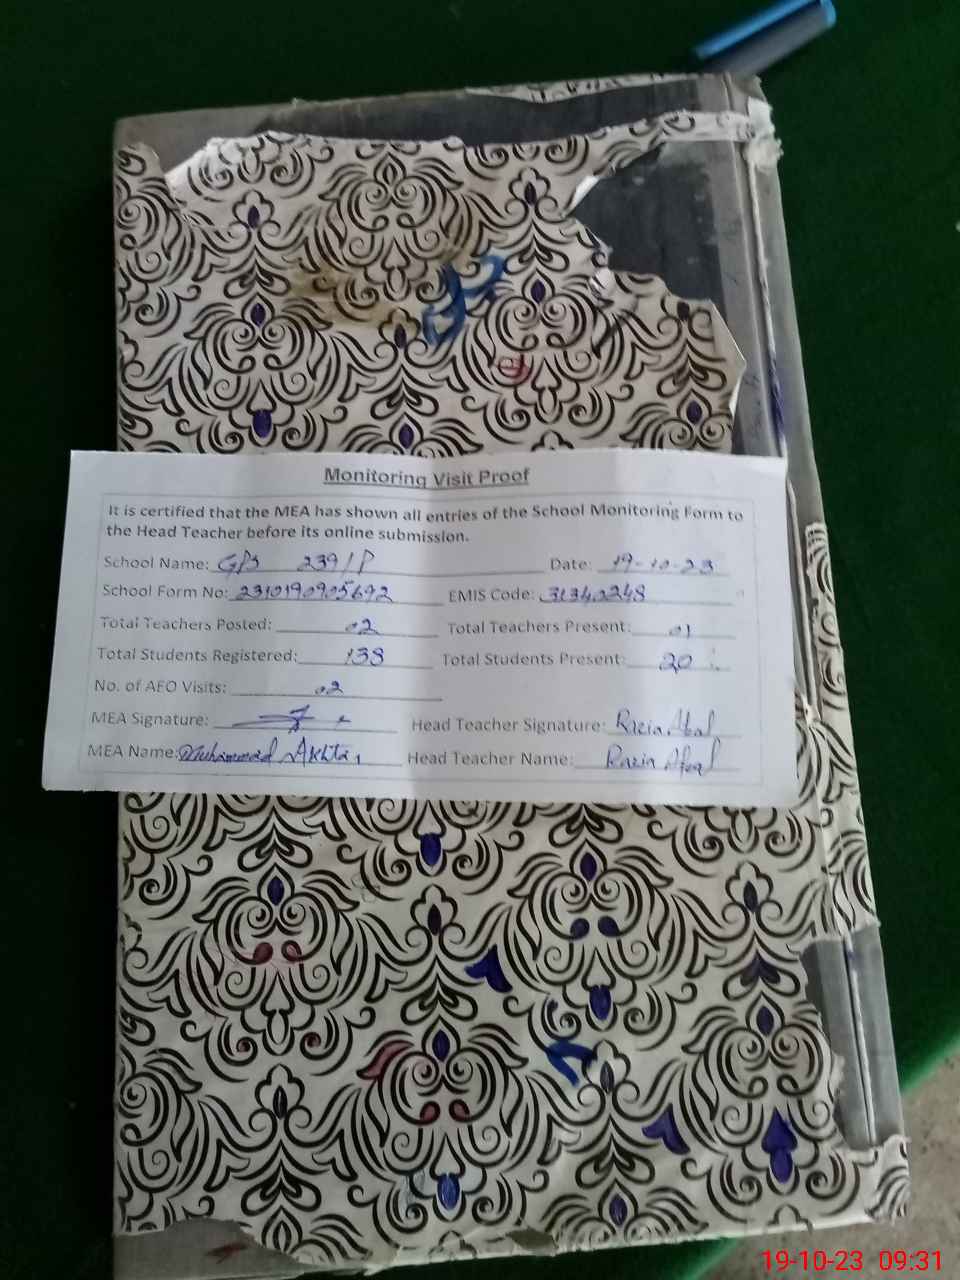 Monitoring Visit Proof
It is certified that the MEA has shown all entries of the School Monitoring Form to
the Head Teacher before its online submission.
School Name: GPS 239/P Date: 19-10-23
School Form No: 2310190905692 EMIS Code: 31340248
Total Teachers Posted: 02 Total Teachers Present: 01
Total Students Registered: 138 Total Students Present: 20
No. of AEO Visits: 02
MEA Signature: Head Teacher Signature: Razia Afzal
MEA Name: Muhammad Akhtar Head Teacher Name: Razia Afzal
19-10-23 09:31